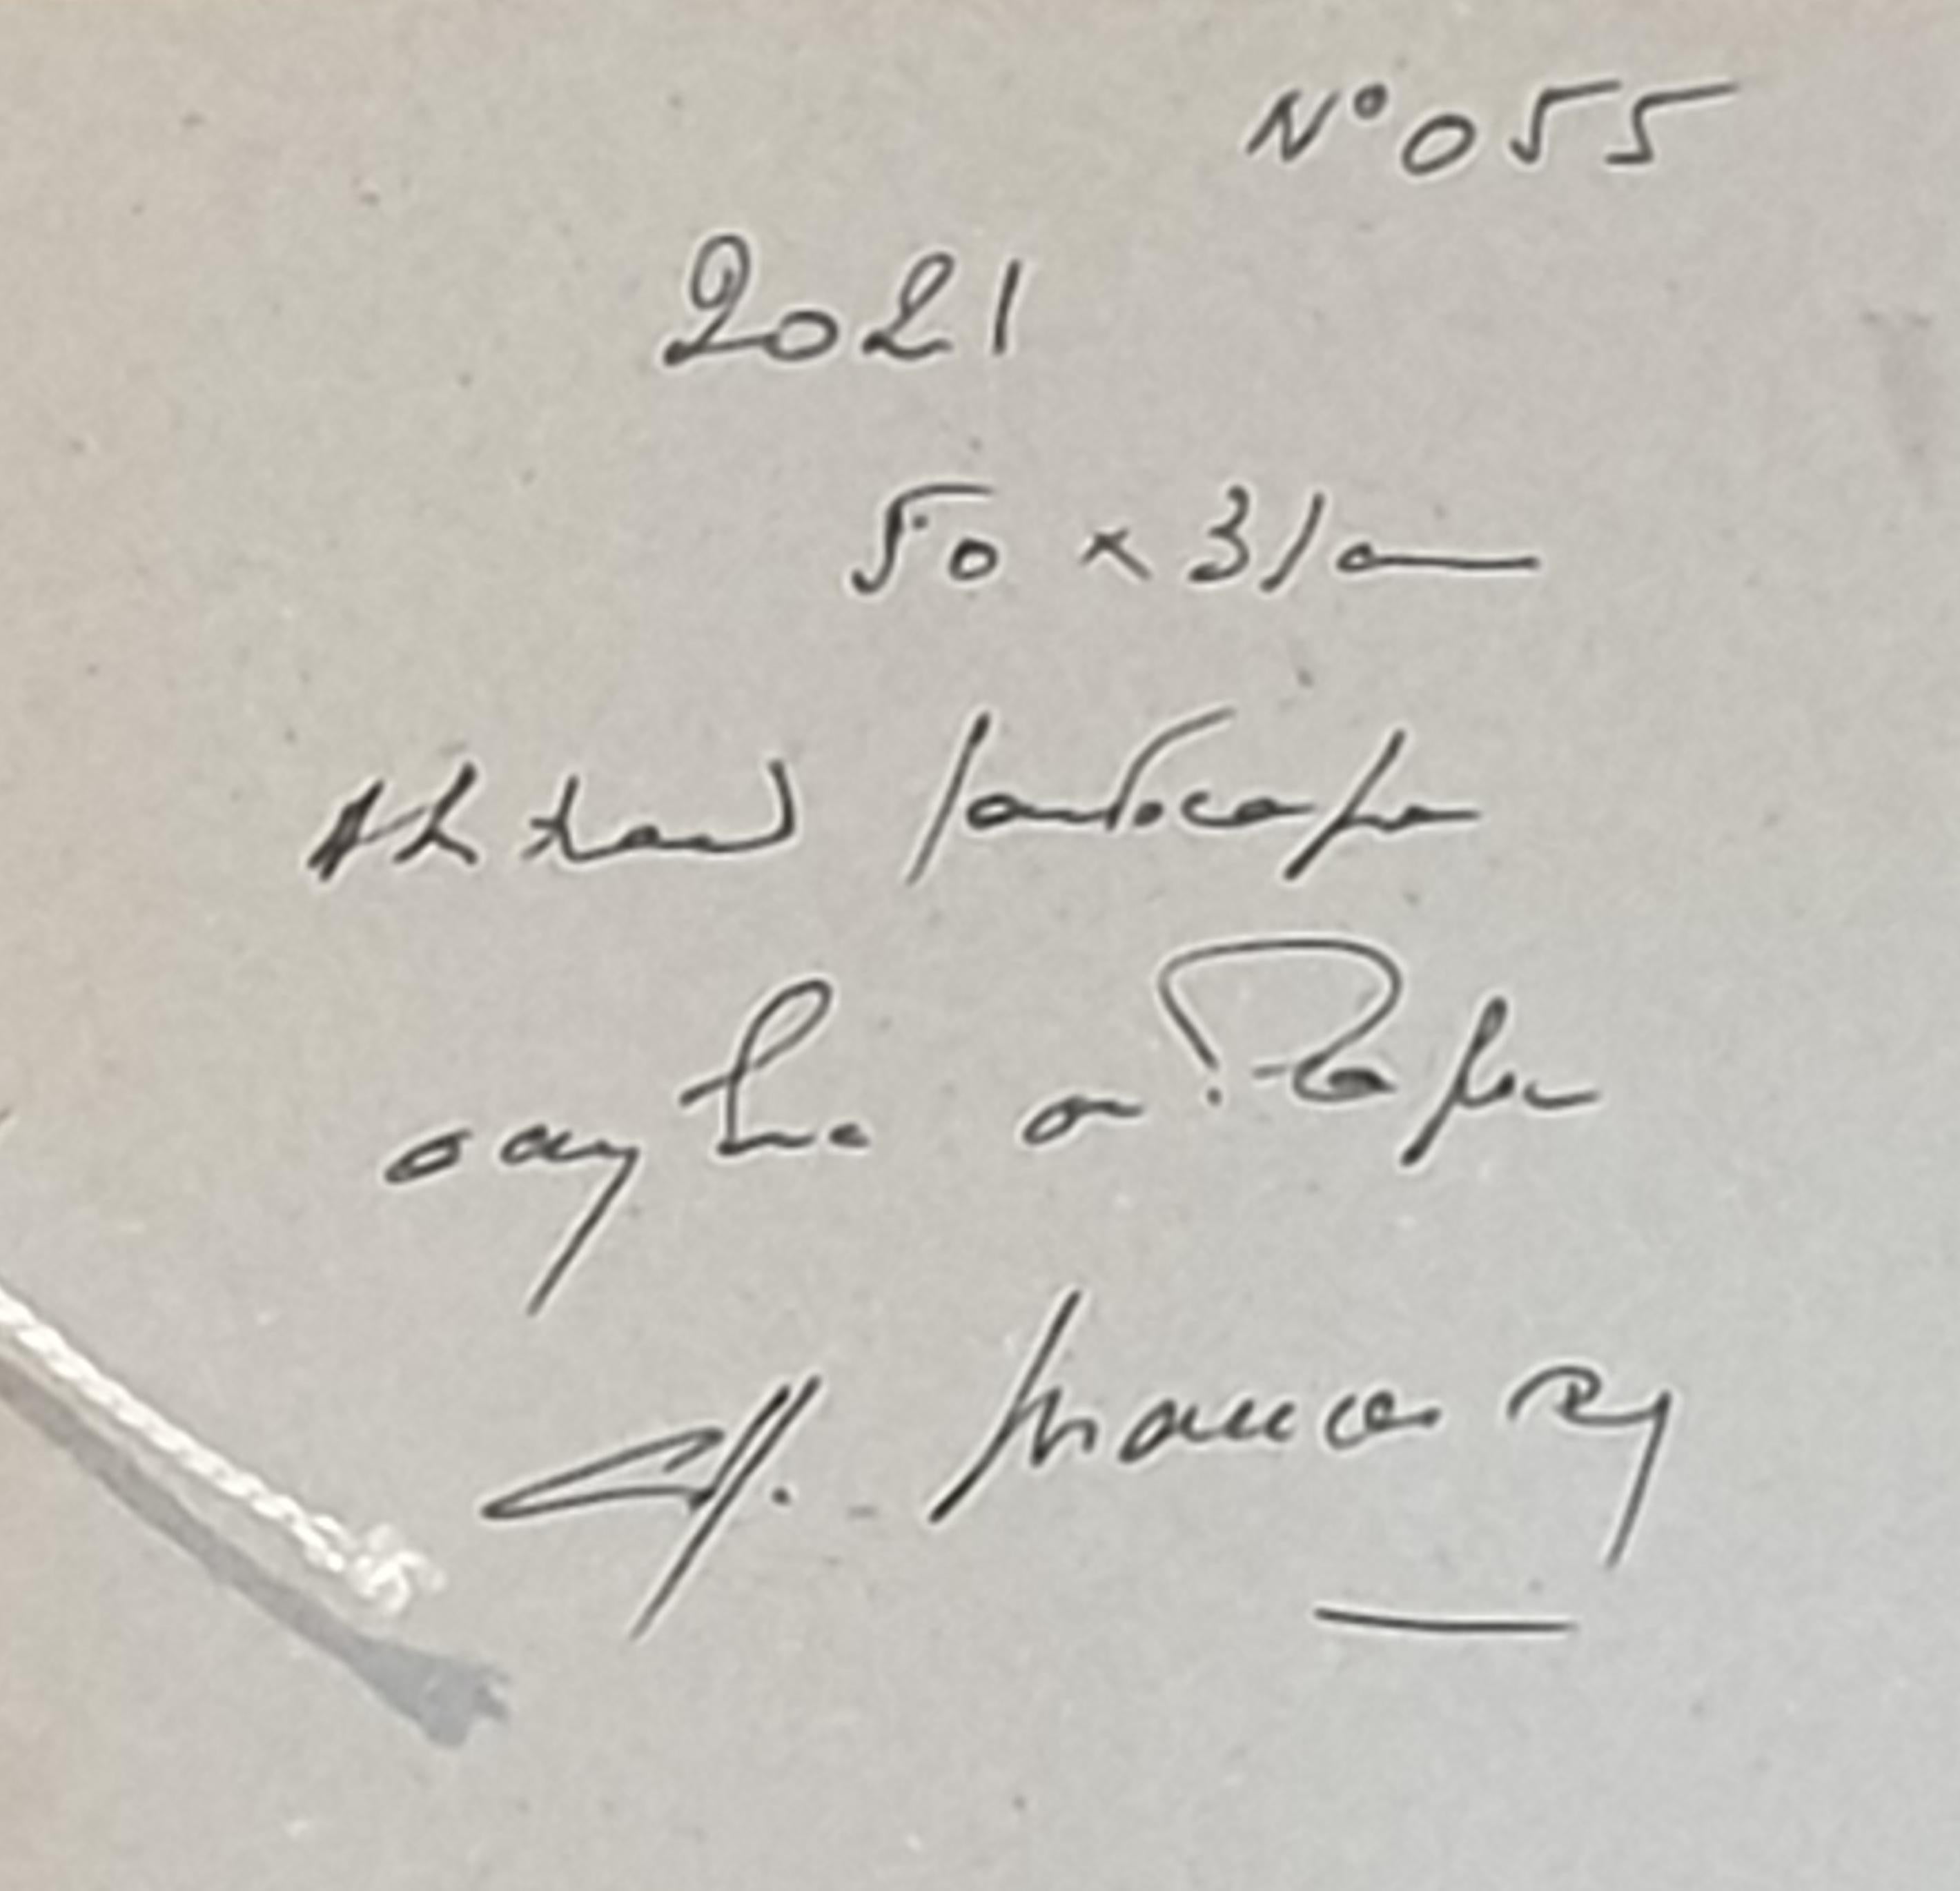 N° 055
2021
50 x 31 cm
Abstract landscape
acrylic on Paper